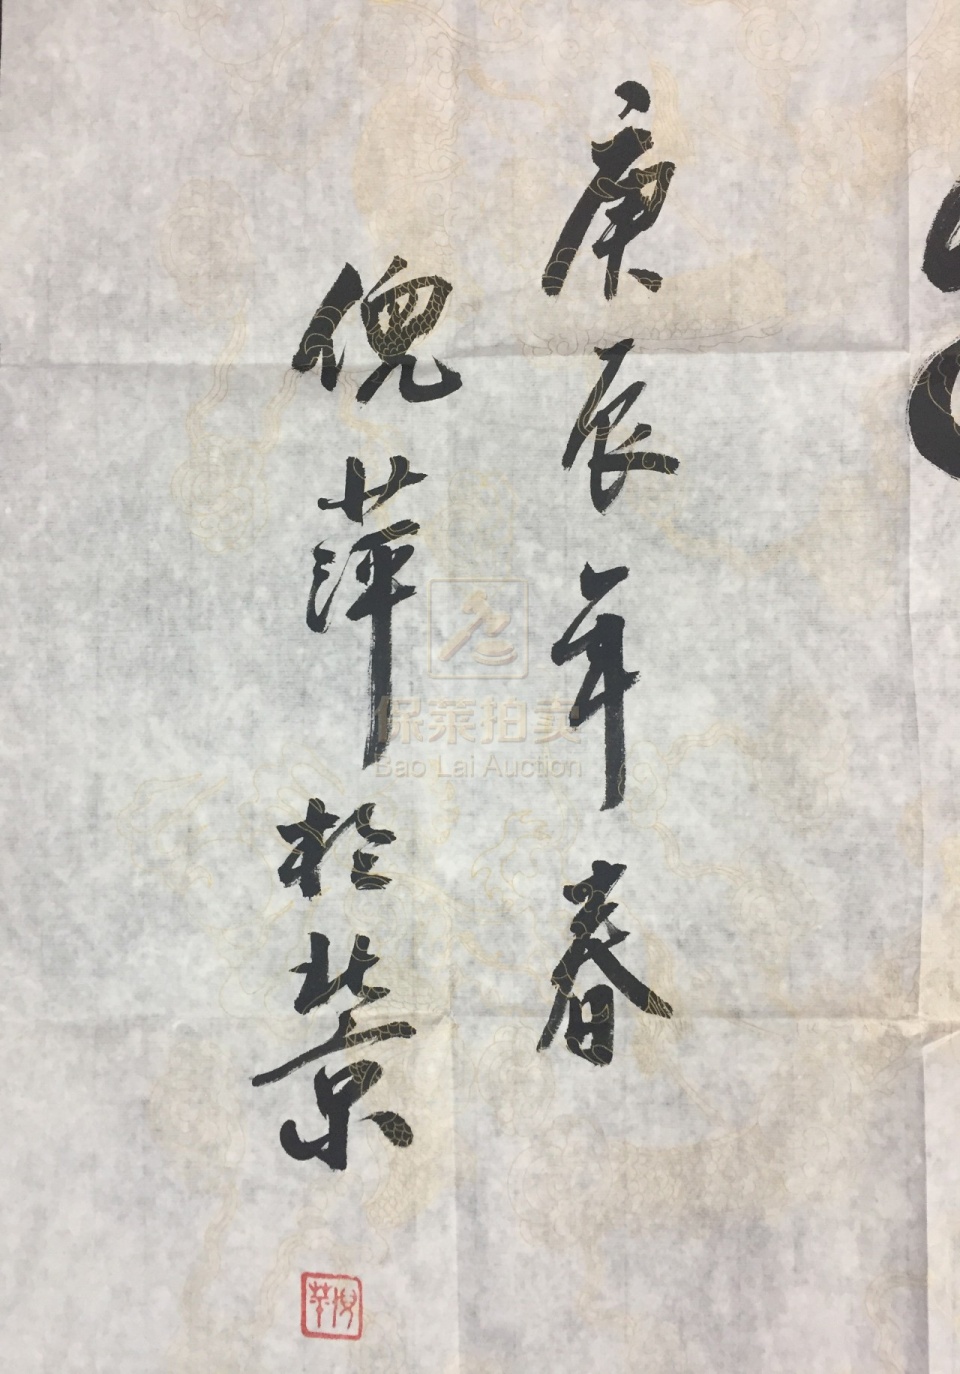 庚辰年春
倪萍於北京
倪萍
保莱拍卖
Bao Lai Auction